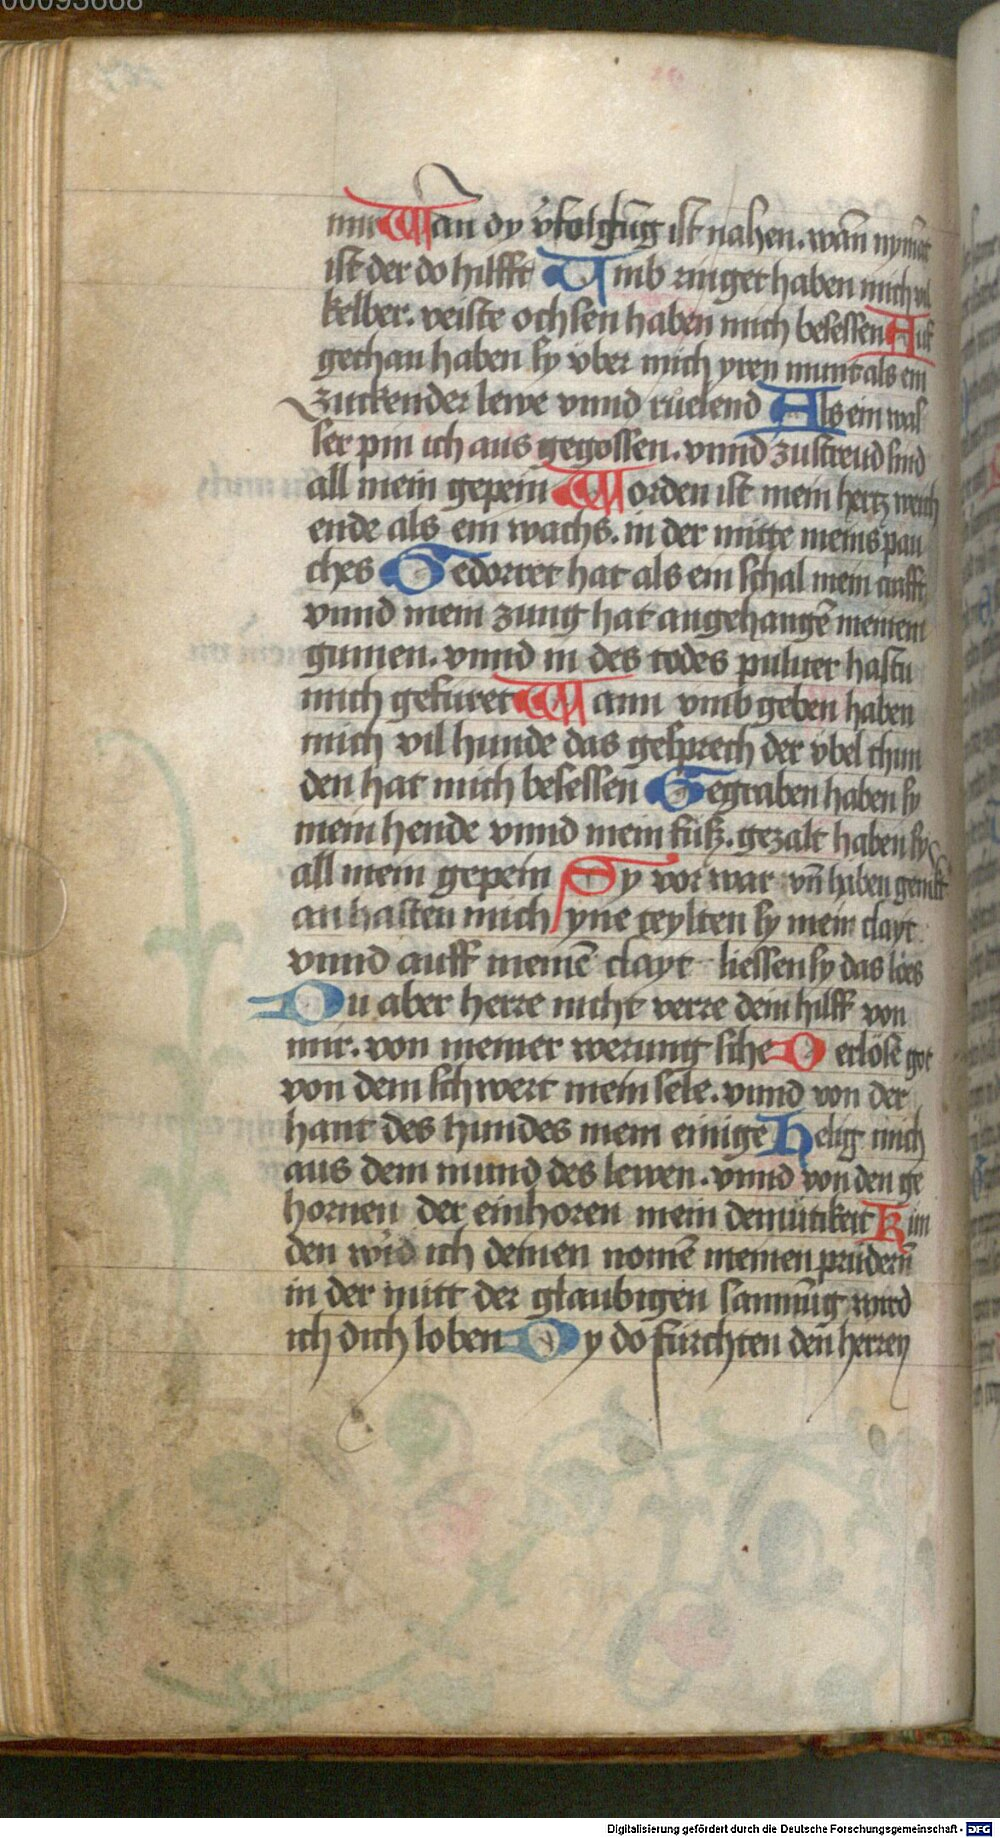 00093668
mir Wan dy v̾folgūg ist nahen. wan̄ nymāt
ist der do hilfft Umb ringet haben mich vil
kelber. veiste ochsen haben mich besessen Auf
gethan haben sy vber mich yren munt als ein
zuckender lewe vnnd rüelend Als ein was
ser pin ich aus gegossen. vnnd zustreud sind
all mein gepein Worden ist mein hertz weich
ende als ein wachs. in der mitte meins pau
ches Gedorret hat als ein schal mein crafft
vnnd mein zung hat angehangē meinem
gumen. vnnd in des todes puluer hastu
mich gefüret Wann vmb geben haben
mich vil hunde das gesprech der vbel thun
den hat mich besessen Gegraben haben sy
mein hende vnnd mein füß. gezalt haben sy
all mein gepein Sy vor war vn̄ haben gemkt
an hasten mich syne teylten sy mein clayt
vnnd auff meinē clayt liessen sy das loes
Du aber herre nicht verre dein hilff von
mir. von meiner werung sihe O erlöse got
von dem schwert mein sele. vnnd von der
hant des hundes mein einige Helig mich
aus dem mund des lewen. vnnd von den ge
hornen der einhoren mein demütikeit Kün
den wird ich deinen nomē meinen prüdern̄
in der mitt der glaubigen samnūg wird
ich dich loben Dy do fürchten den̄ herren
Digitalisierung gefördert durch die Deutsche Forschungsgemeinschaft - DFG